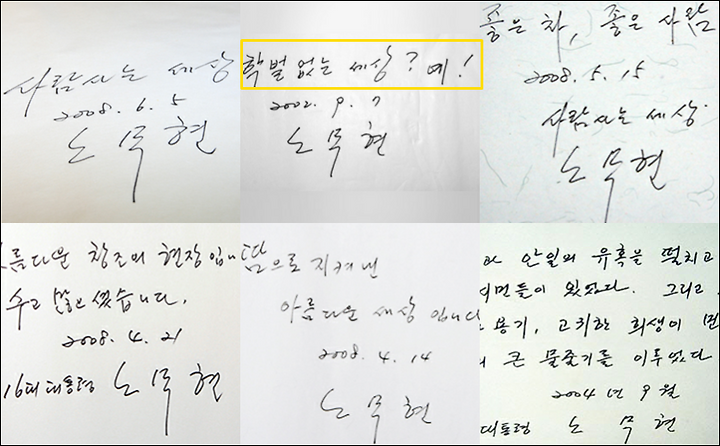 사람사는 세상
2008. 6. 5
노무현
학벌 없는 세상? 예!
2002. 9. 7
노무현
좋은 차, 좋은 사람
2008. 5. 15
사람사는 세상.
노무현
름다운 창조의 현장입니
수고 많으셨습니다.
2008. 4. 21
16대 대통령 노무현
땀으로 지켜낸
아름다운 세상 입니다
2008. 4. 14
노무현
과 안일의 유혹을 떨치고
이 있었다. 그리고
용기, 고귀한 희생이
큰 물줄기를 이루었다
2004년 9월
대통령 노무현